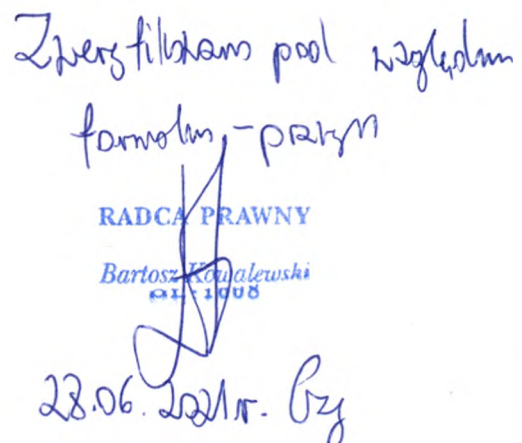 Zweryfikowano pod względem
formalno-prawnym
RADCA PRAWNY
Bartosz Kowalewski
OL-1008
28.06.2021r.